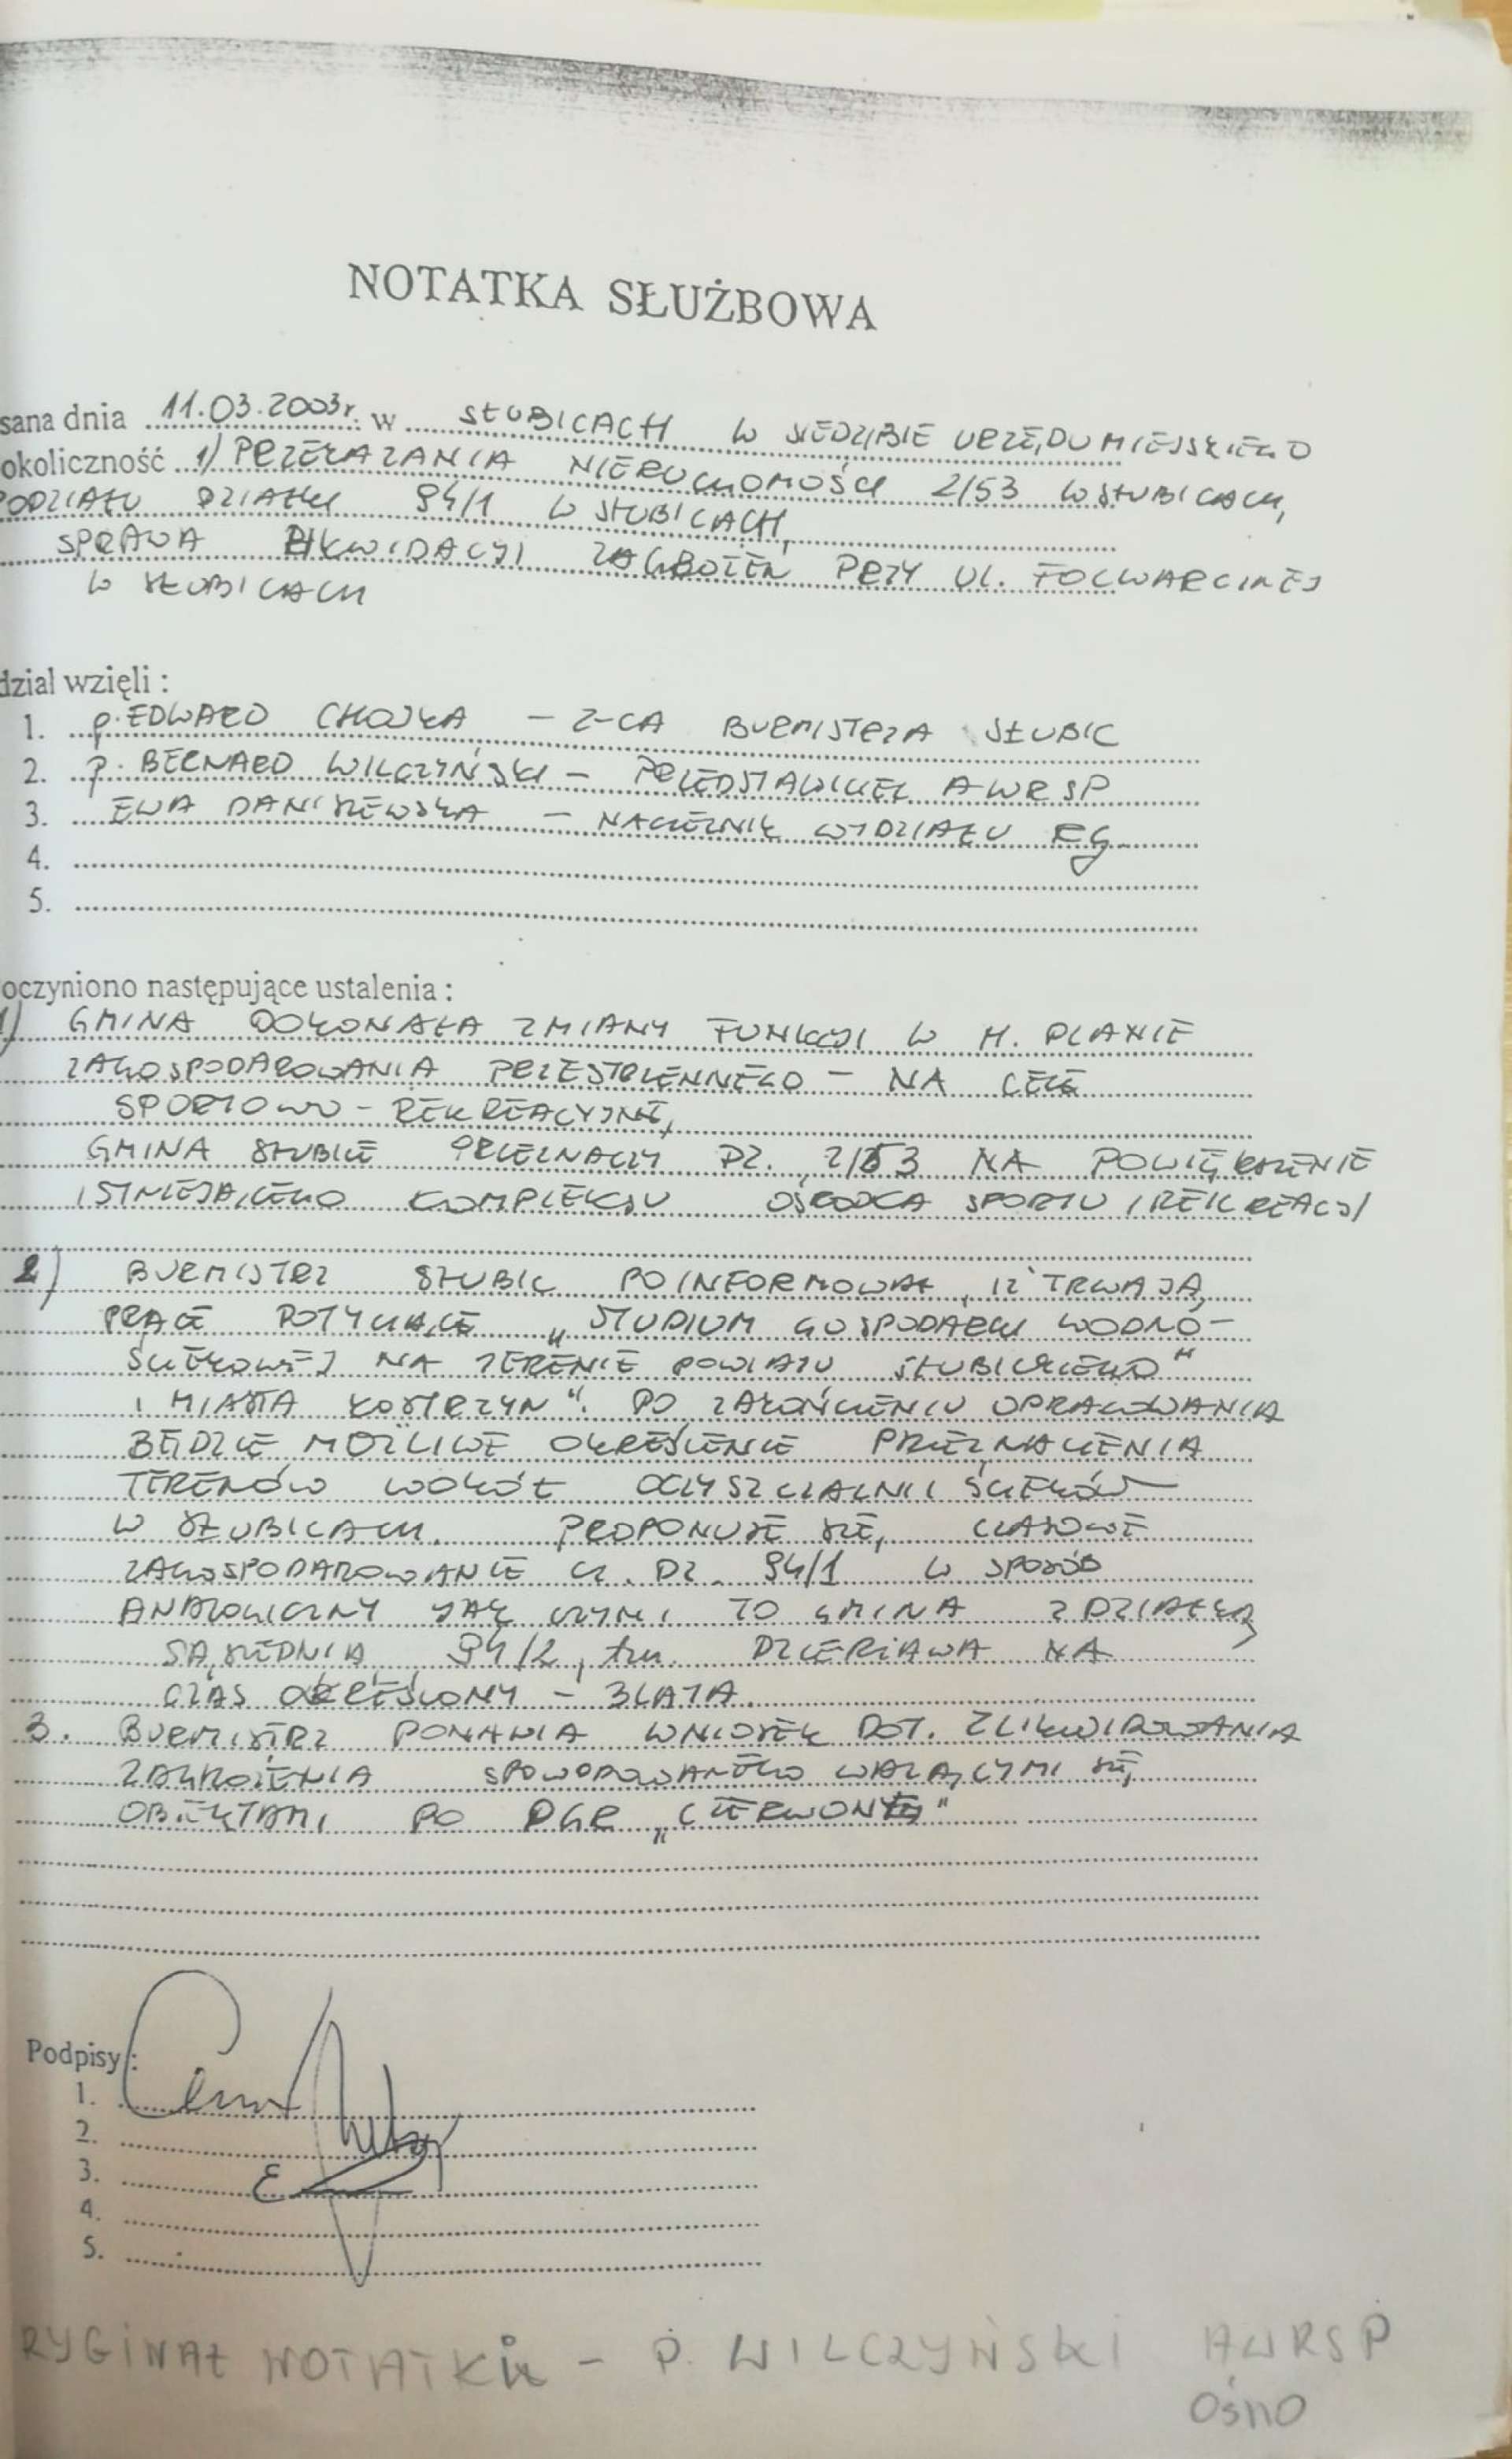 NOTATKA SŁUŻBOWA
sana dnia 11.03.2003r. w SŁUBICACH W SIEDZIBIE URZĘDU MIEJSKIEGO
okoliczność 1) PRZEKAZANIA NIERUCHOMOŚCI 2/53 W SŁUBICACH,
PODZIAŁU DZIAŁKI 94/1 W SŁUBICACH,
SPRAWA LIKWIDACJI ZAGROŻEŃ PRZY UL. FOLWARCZNEJ
W SŁUBICACH
dział wzięli :
1. p. EDWARD CHOJKA – Z-CA BURMISTRZA SŁUBIC
2. p. BERNARD WILCZYŃSKI – PRZEDSTAWICIEL AWRSP
3. EWA DANISZEWSKA – NACZELNIK WYDZIAŁU RG
4.
5.
oczyniono następujące ustalenia :
1) GMINA DOKONAŁA ZMIANY FUNKCJI W M. PLANIE
ZAGOSPODAROWANIA PRZESTRZENNEGO – NA CELE
SPORTOWO – REKREACYJNE,
GMINA SŁUBICE PRZEZNACZY DZ. 2/53 NA POWIĘKSZENIE
ISTNIEJĄCEGO KOMPLEKSU OŚRODKA SPORTU I REKREACJI
2) BURMISTRZ SŁUBIC POINFORMOWAŁ, IŻ TRWAJĄ
PRACE DOTYCZĄCE „STUDIUM GOSPODARKI WODNO –
ŚCIEKOWEJ NA TERENIE POWIATU SŁUBICKIEGO"
I MIASTA KOSTRZYN". PO ZAKOŃCZENIU OPRACOWANIA
BĘDZIE MOŻLIWE OKREŚLENIE PRZEZNACZENIA
TERENÓW WOKÓŁ OCZYSZCZALNI ŚCIEKÓW
W SŁUBICACH. PROPONUJE SIĘ, CZASOWE
ZAGOSPODAROWANIE CZ. DZ. 94/1 W SPOSÓB
ANALOGICZNY JAK CZYNI TO GMINA Z DZIAŁKĄ
SĄSIEDNIĄ 94/2, tzn. DZIERŻAWA NA
CZAS OKREŚLONY – 3 LATA.
3. BURMISTRZ PONAWIA WNIOSEK DOT. ZLIKWIDOWANIA
ZAGROŻENIA SPOWODOWANEGO WALĄCYMI SIĘ,
OBIEKTAMI PO PGR
Podpisy :
1.
2.
3.
4.
5.
RYGINAŁ NOTATKI – P. WILCZYŃSKI AWRSP
OŚNO